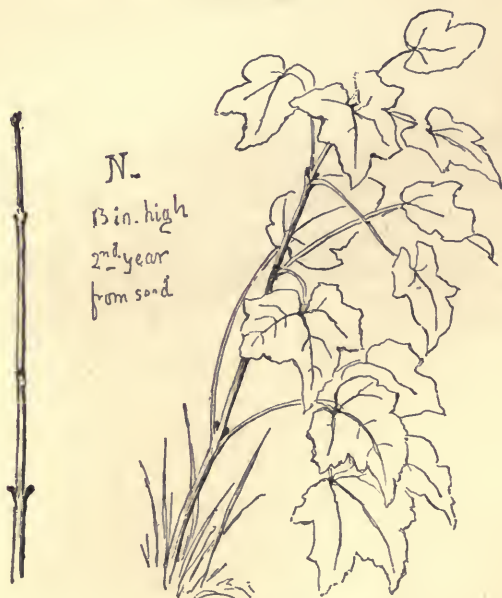 N.
13 in. high
2nd year
from seed